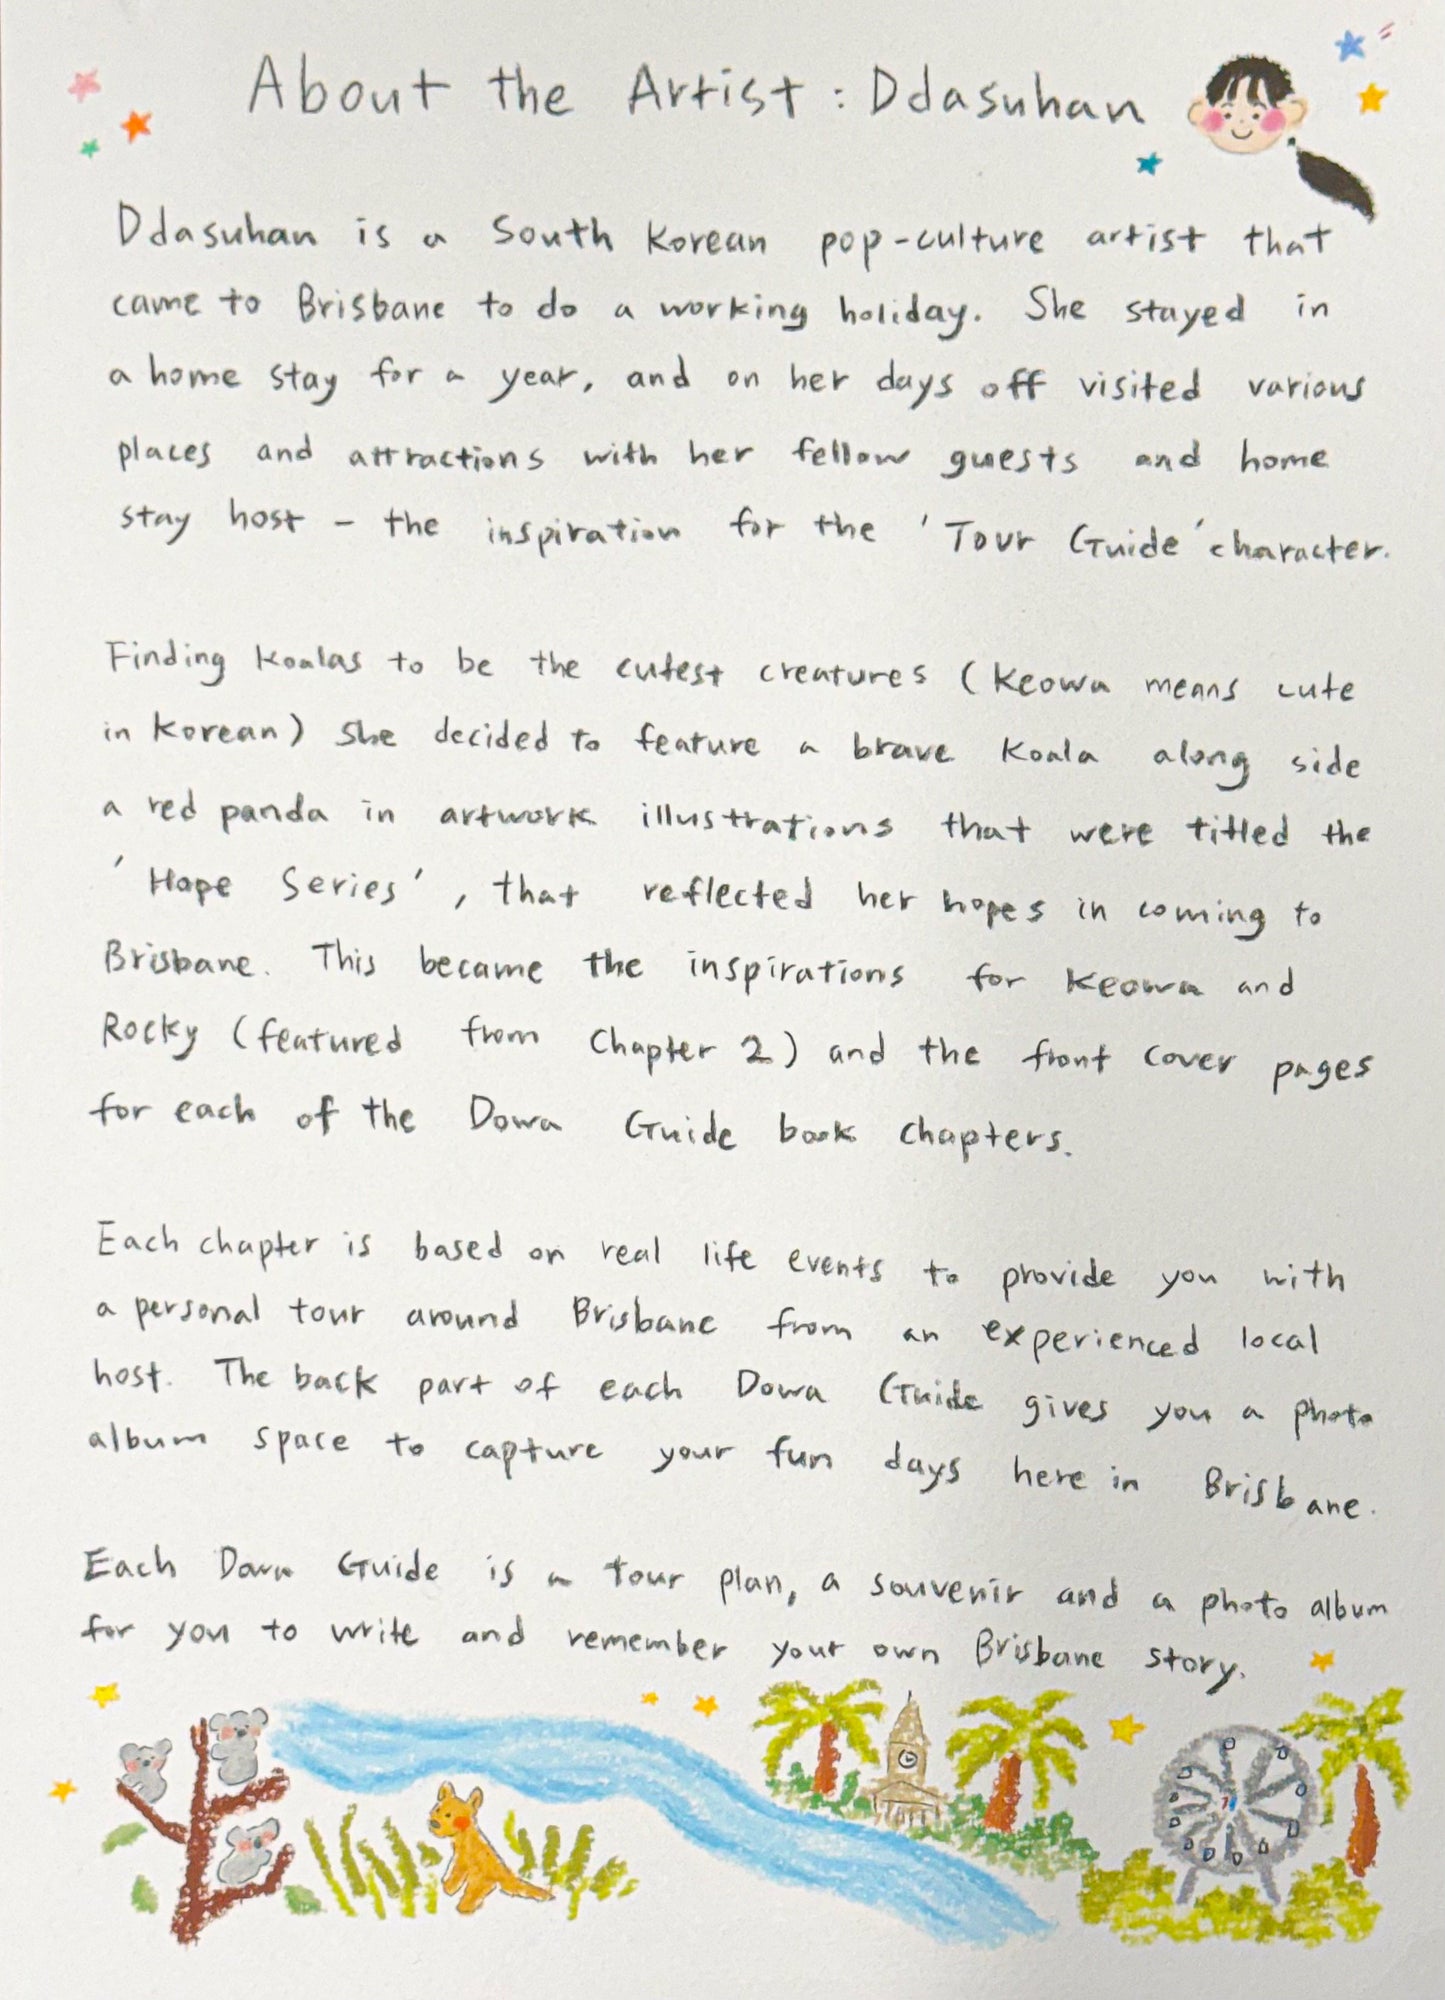 About the Artist : Ddasuhan
Ddasuhan is a South Korean pop-culture artist that
came to Brisbane to do a working holiday. She stayed in
a home stay for a year, and on her days off visited various
places and attractions with her fellow guests and home
stay host - the inspiration for the 'Tour Guide' character.
Finding Koalas to be the cutest creatures (Keowa means cute
in Korean) She decided to feature a brave Koala along side
a red panda in artwork illustrations that were titled the
'Hope Series', that reflected her hopes in coming to
Brisbane. This became the inspirations for Keowa and
Rocky (featured from Chapter 2) and the front cover pages
for each of the Dowa Guide book chapters.
Each chapter is based on real life events to provide you with
a personal tour around Brisbane from an experienced local
host. The back part of each Dowa Guide gives you a photo
album space to capture your fun days here in Brisbane.
Each Dowa Guide is a tour plan, a souvenir and a photo album
for you to write and remember your own Brisbane story.